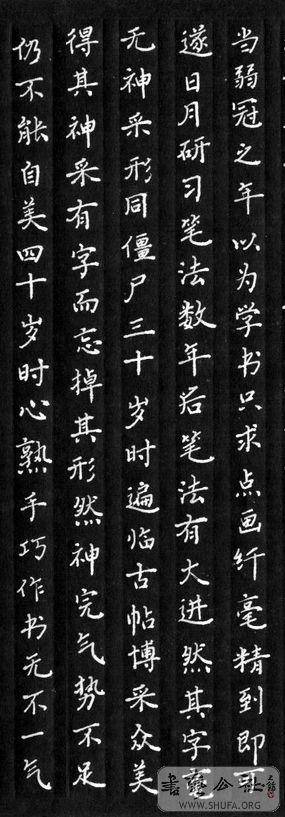 当弱冠之年以为学书只求点画纤毫精到即可
遂日月研习笔法数年后笔法有大进然其字竟
无神采形同僵尸三十岁时遍临古帖博采众美
得其神采有字而忘掉其形然神完气势不足
仍不能自美四十岁时心熟手巧作书无不一气
WWW.SHUFA.ORG